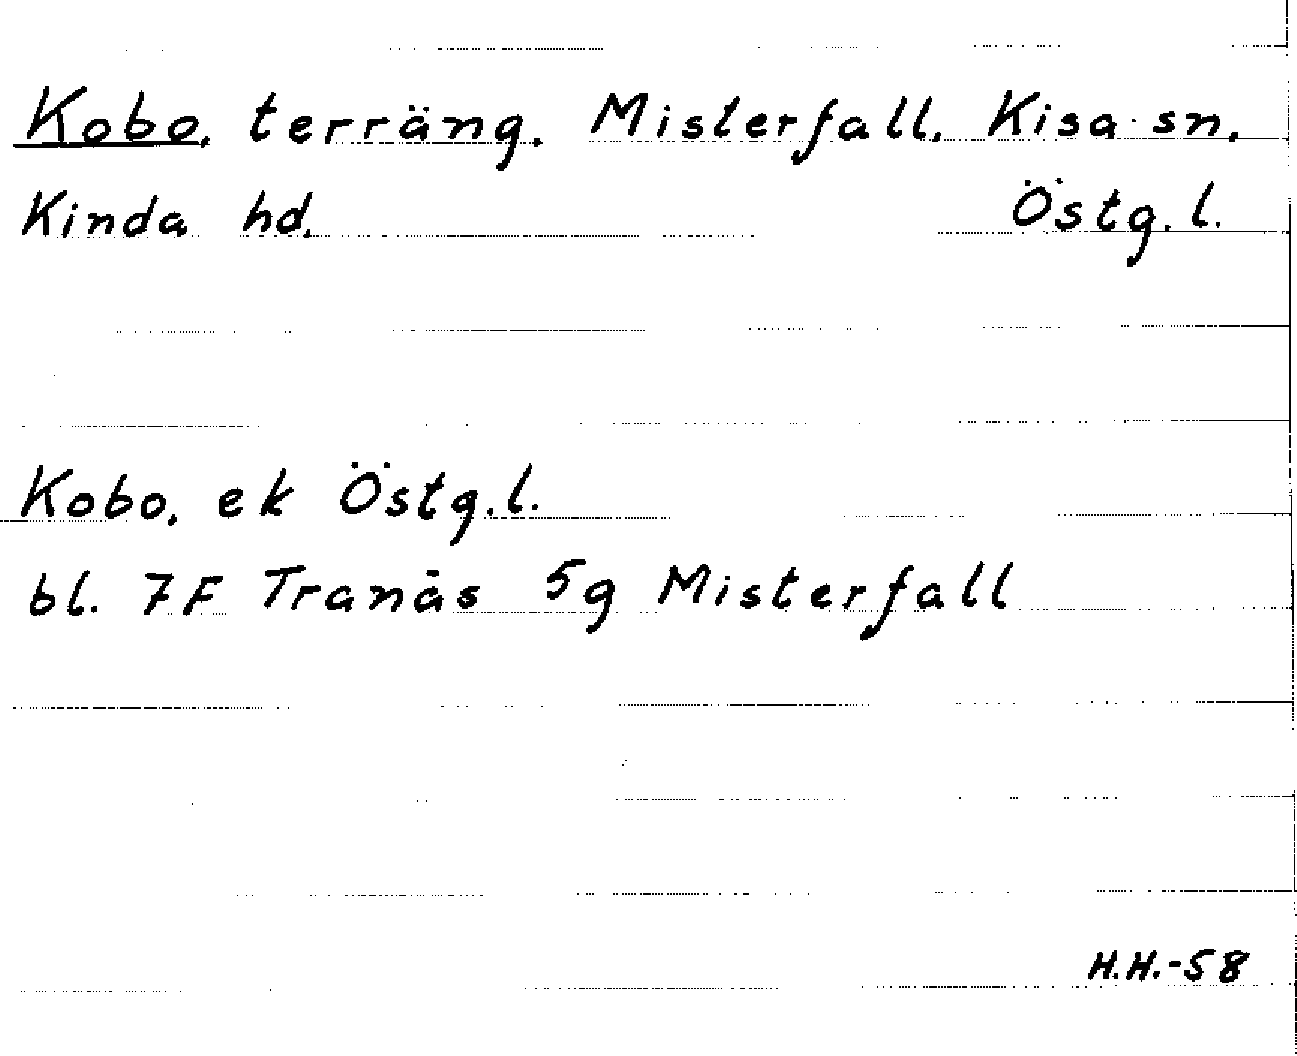 Kobo, terräng. Misterfall. Kisa sn.
Kinda hd. Östg.l.
Kobo, ek Östg.l.
bl. 7F Tranås 5g Misterfall
H.H.-58